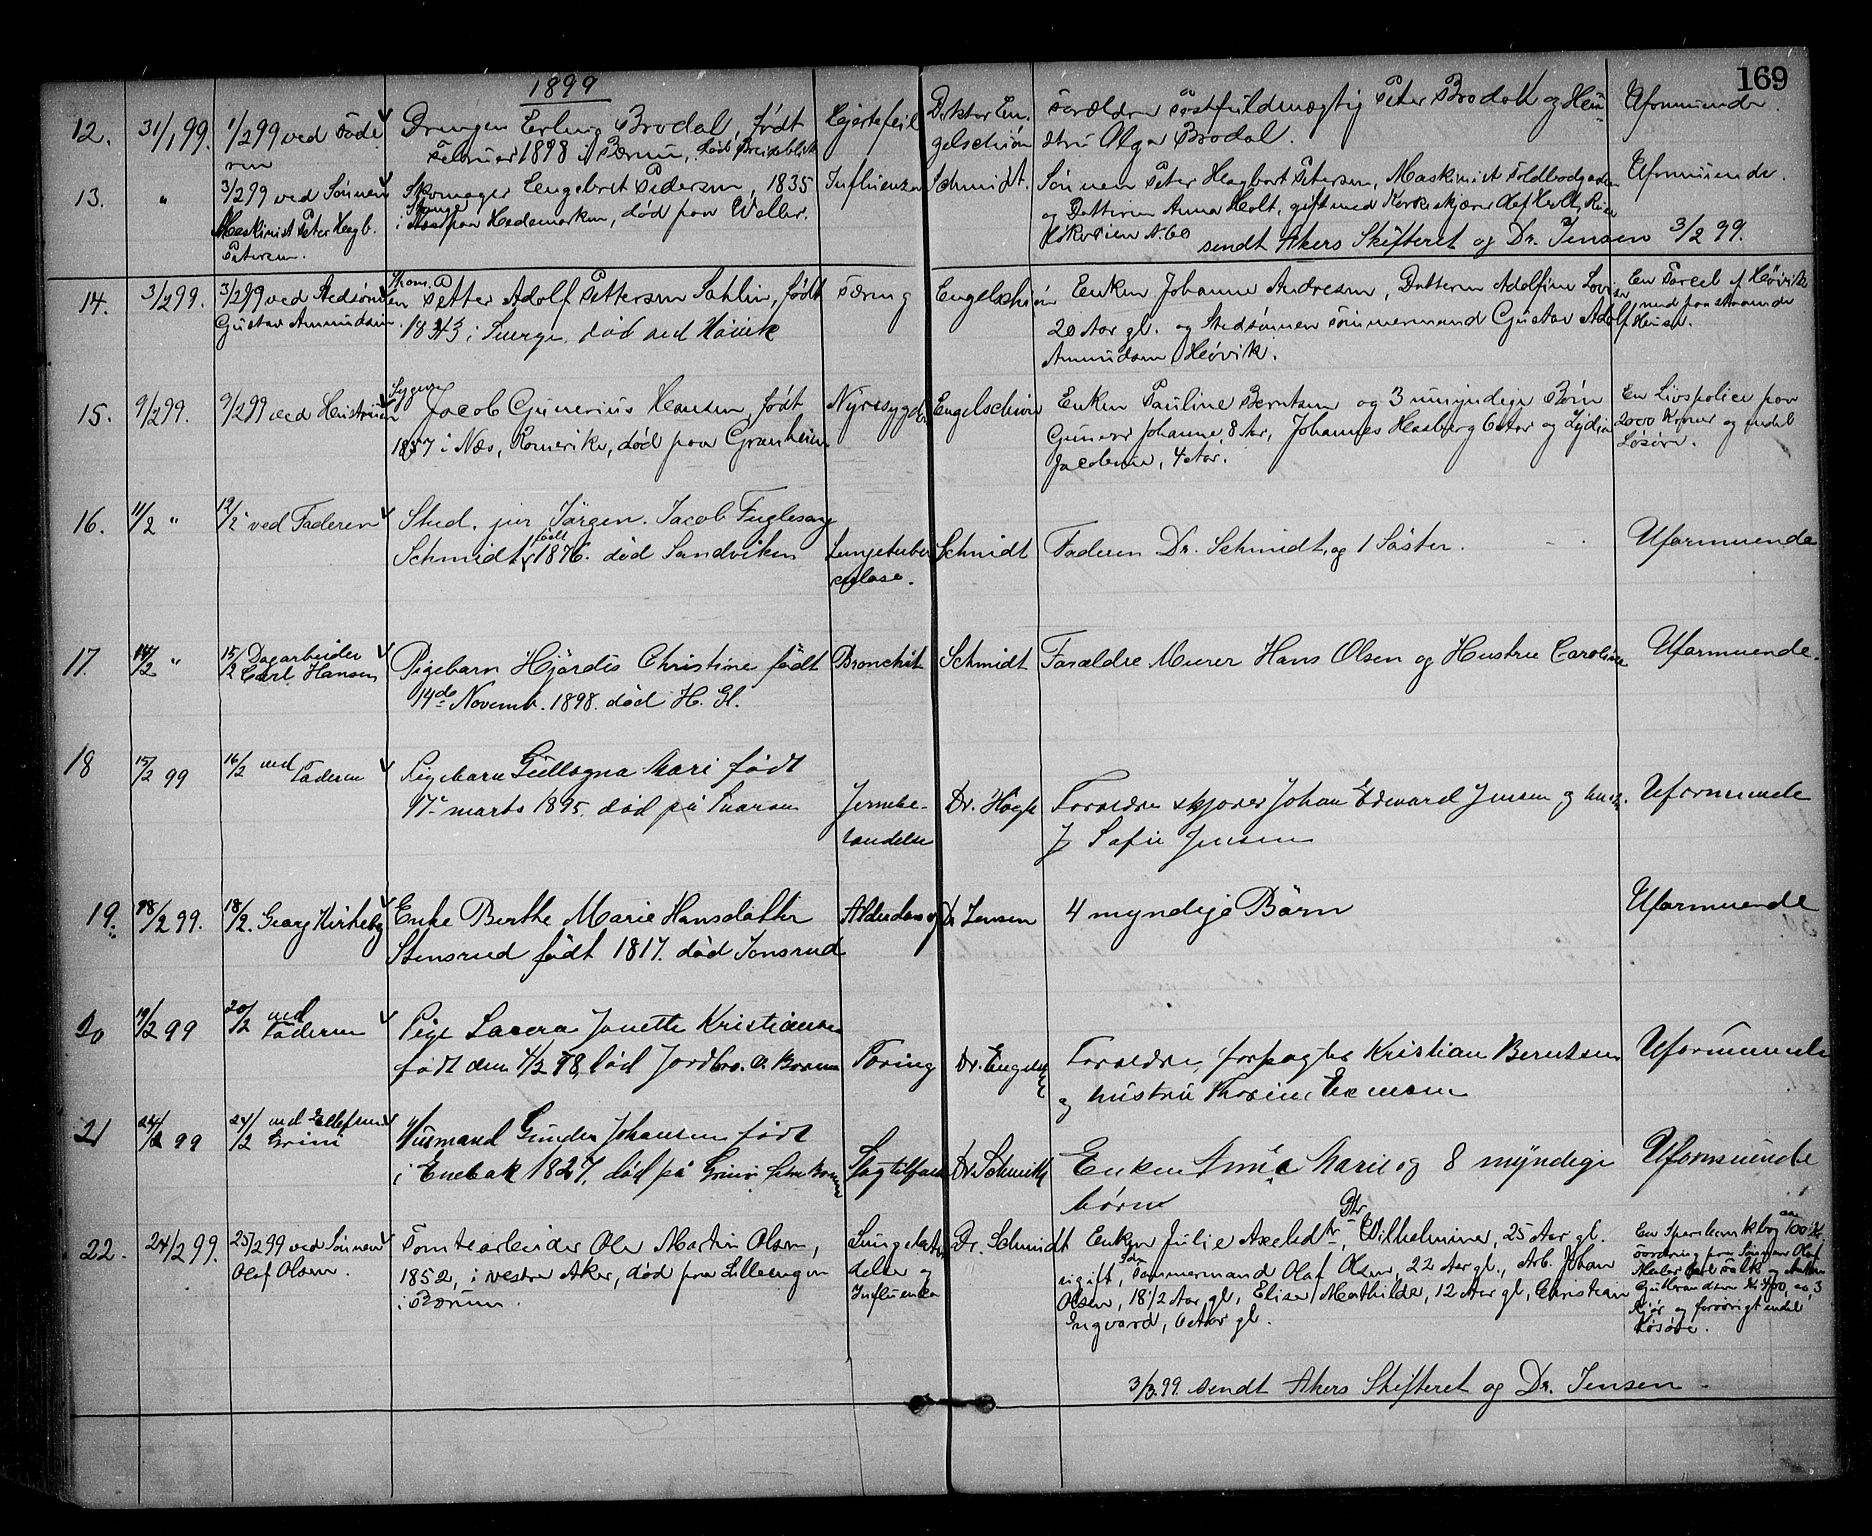 169
1899
12. 31/1 99. 1/2 99 ved Fade- Drengen Erling Brodal, født Hjertefeil Doktor En- Forældre Postfuldmægtig Peter Brodal og Hu- Uformuende.
ren Februar 1898 i Bærum, død gelschiøn stru Olga Brodal.
13. " 3/2 99 ved Sønnen Skomager Engebret Pedersen, 1835 Influenza Schmidt. Sønnen Peter Hagbart Petersen, Maskinist Toldbodgaden Uformuende.
Maskinist Peter Hagb. i Stange paa Hedemarken, død paa Waller. og Datteren Anna Holt, gift med Korkskjærer
Petersen. sendt Akers Skifteret og Dr. Jensen 3/2 99.
14. 3/2 99. 3/2 99 ved Stedsønnen Petter Adolf Pettersen Sahlin, født Tæring Engelschiøn Enken Johanne Andresen, Datteren Adolfine En Parcel af Høvik
Gustav Amundsen. 1843 i Sverge, død ved Høvik 20 Aar gl. og Stedsønnen Tømmermand Gustav Adolf
Amundsen, Høvik.
15. 9/2 99. 9/2 99 ved Hustruen Jacob Gunerius Hansen, født Nyresygd. Engelschiøn Enken Pauline Berntsen og 3 umyndige Børn En Livspolice paa
1857 i Næs, Romerike, død paa Granheim Johanne, 8 Aar, Johannes Hasberg 6 Aar og Lydia 2000 Kroner og endel
Jacobine, 4 Aar. Løsøre.
16. 11/2 " 12/2 ved Faderen Stud. jur Jörgen Jacob Fuglesang
Schmidt født 1876. död Sandviken Lungetuber Schmidt Faderen Dr. Schmidt, og 1 Söster. Uformuende
culose.
17. 14/2 " 15/2 Dagarbeider Pigebarn Hjördis Christine født Bronchit Schmidt Forældre Murer Hans Olsen og Hustru Caroline Uformuende.
Carl Hansen 14de Novemb. 1898. død H. Gl.
18 15/2 99 16/2 ved Pigebarn Gullagna Mari født
Faderen 17. marts 1895. død på Jernebe- Dr. Høgh Forældre skjører Johan Edvard Jensen og Uformuende
tændelse Sofie Jensen
19. 18/2 99. 18/2. Georg Kirkeby Enke Berthe Marie Hansdatter Alderdoms Dr Jensen 4 myndige Börn Uformuende
Stensrud födt 1817. död Jonsrud
20 19/2 99 20/2 ved Pige Laura Jonette Kristiansen
Faderen født den 4/2 98, død Jordbro. Ø. Bærum Tæring Dr. Engelsch Forældre, forpagter Kristian Berntsen Uformuende
og hustru Thorine
21 24/2 99 24/2 ved Ellefsen Husmand Gunder Johansen født
Grini i Enebak 1827, død på Grini Slagtilfælde Dr. Schmidt Enken Anne Marie og 8 myndige Uformuende
børn
22. 24/2 99. 25/2 99 ved Sønnen Tomtearbeider Ole Martin Olsen, Lungebetæn- Dr. Schmidt Enken Julie Axelsd., Dtr. Vilhelmine, 25 Aar gl. En Sparebankbog
Olaf Olsen. 1852, i vestre Aker, død paa Lilleengen delse og ugift, Søn Tømmermand Olaf Olsen, 22 Aar gl., Arb. Johan Fordring paa Sønnen Olaf
i Bærum. Influenza Olsen, 18 1/2 Aar gl., Elise Mathilde, 12 Aar gl., Christian
Ingvard, 6 Aar gl. Kjør og forøvrigt endel
Løsøre.
3/3 99. sendt Akers Skifteret og Dr. Jensen.